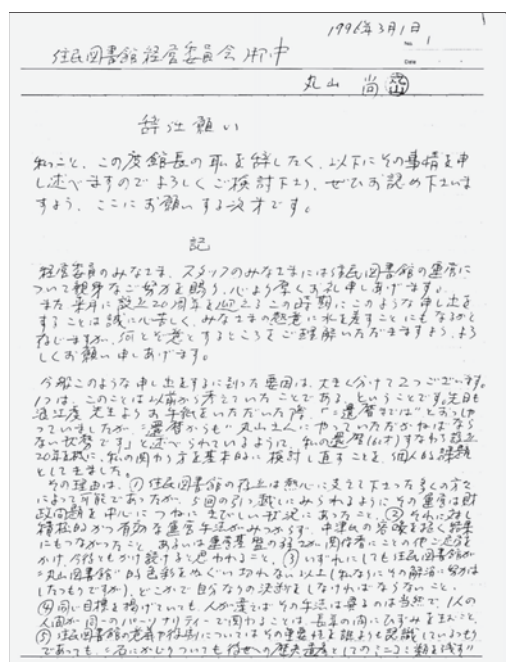 1
1996年3月1日
No. 1
住民図書館経営委員会 御中
Date
丸山 尚
辞任願い
私こと、この度館長の職を辞したく、以下にその事情を申
し述べますのでよろしくご検討下さり、ぜひお認め下さいま
すよう、ここにお願いする次第です。
記
経営委員のみなさま、スタッフのみなさまには住民図書館の運営に
ついて親身なご努力を賜り、心より厚くお礼申しあげます。
また来月に設立20周年を迎えるこの時期にこのような申し出を
することは誠に心苦しく、みなさまの熱意に水を差すことにもなるかと
存じますが、何とぞ意とするところをご理解いただきますよう、よろ
しくお願い申しあげます。
今般このような申し出をするに到った要因は、大きく分けて2つございます。
1つは、このことは以前から考えていたことである、ということです。先日も
先生よりお手紙をいただいた際、"還暦までは"とおっしゃ
っていましたが、"還暦からも"丸山さんにやっていただかねばなら
ない状勢です」と述べられているように、私の還暦(60才)すなわち設立
20年を機に、私の関わり方を基本的に検討し直すことを、個人的な課題
としてきました。
その理由は、①住民図書館の存立は熱心に支えて下さった多くの方々
によって可能であったが、今回の引っ越しにみられるようにその運営は財
政問題を中心につねにきびしい状況にあったこと、②それに対し
積極的かつ有効な運営方法がみつからず、中津氏の客を招く結果
にもつながったこと、あるいは運営基盤の弱さが関係者にことの他ご迷惑を
かけ、今後ともかけ続けると思われること、③いずれにしても住民図書館が
"丸山図書館"的色彩をぬぐい切れない以上(私なりにその解消に努力は
したつもりですが)、どこかで自分なりの決断をしなければならないこと、
④同じ目標を掲げていても、人が違えばその方法は異るのは当然で、1人の
人間が同一のパーソナリティーで関わることは、長年の内にひずみを生むこと、
⑤住民図書館の意義や役割についてはその重要性を誰よりも認識しているつもり
であっても、"石にかじりついても後世への歴史遺産としてのミニコミ類を残す"